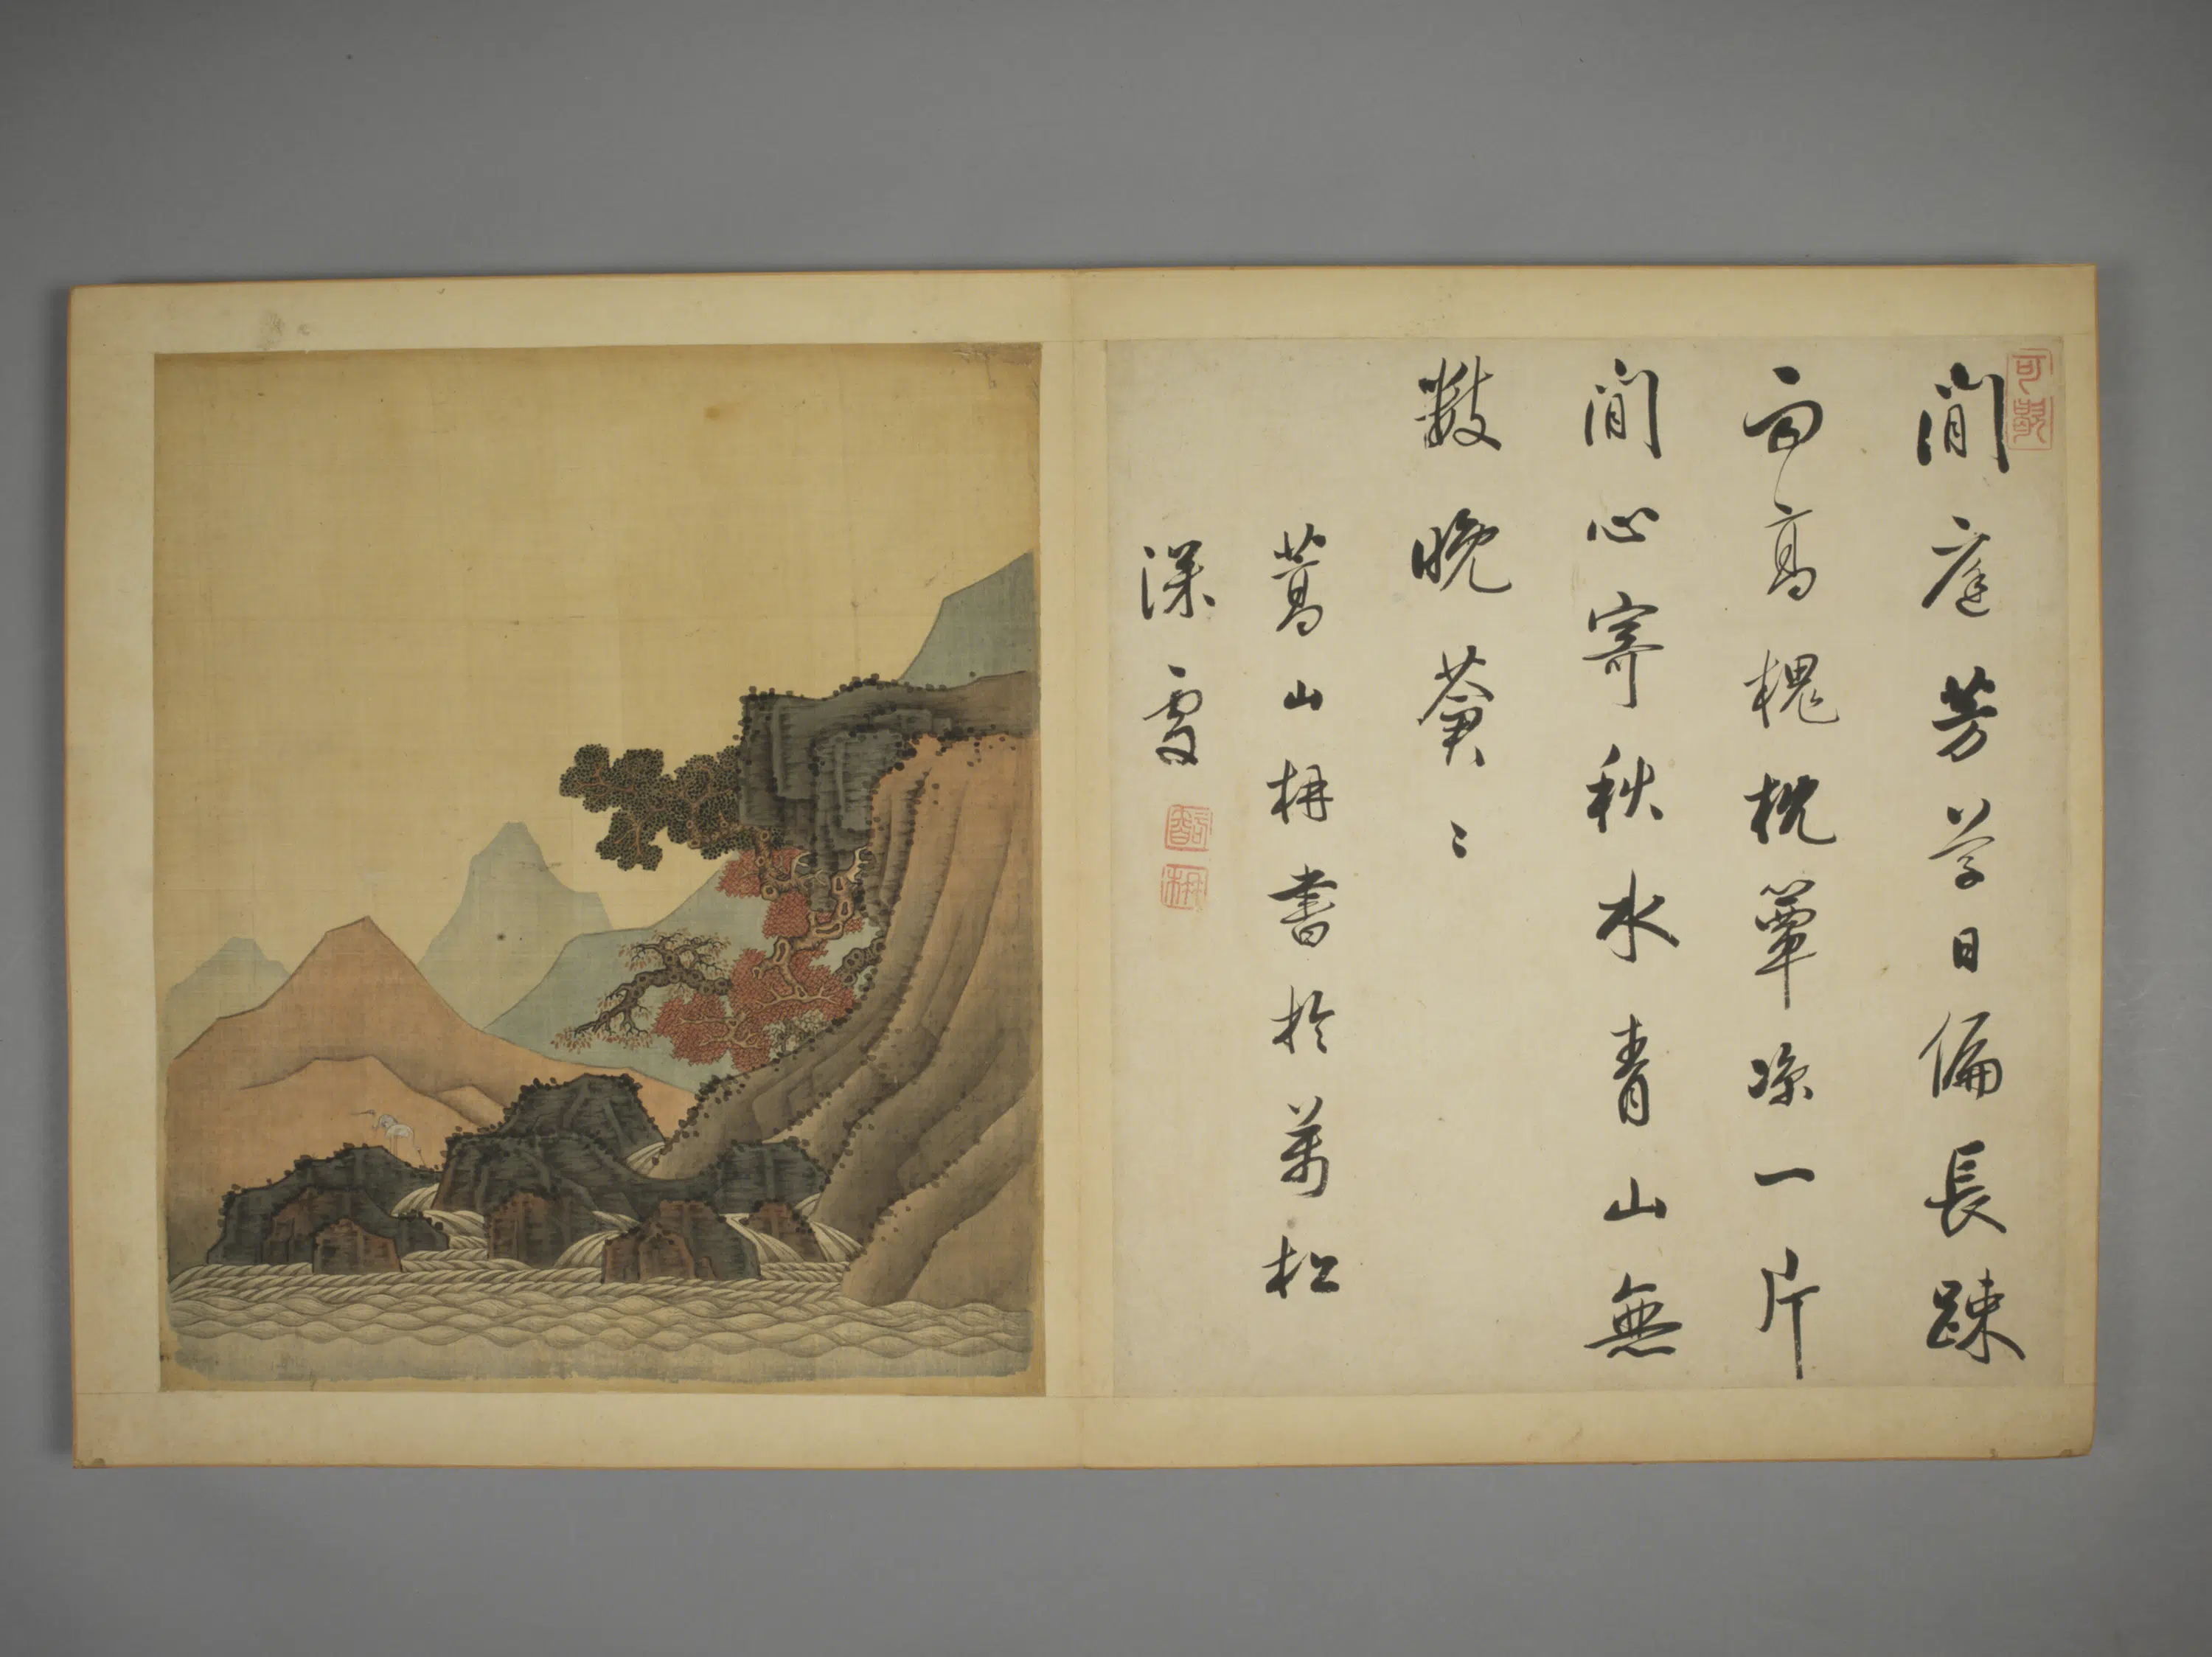 閒庭芳草日偏長踈
雨高槐枕簟涼一片
閒心寄秋水青山無
數晚蒼〻
蒿山枬書於萬松
深處